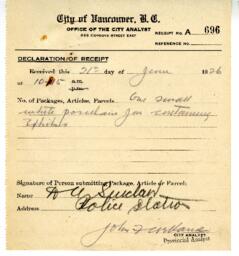 City of Vancouver, B. C.
OFFICE OF THE CITY ANALYST
RECEIPT No. A 696
REFERENCE No.
DECLARATION OF RECEIPT
Received this 21st day of June 1926
at 10.15 a.m.
p.m.
No. of Packages, Articles, Parcels. One small
white porcelain jar containing
Signature of Person submitting Package, Article or Parcel.
Name Sinclair
Address Police Station
John F.
CITY ANALYST
Provincial Analyst